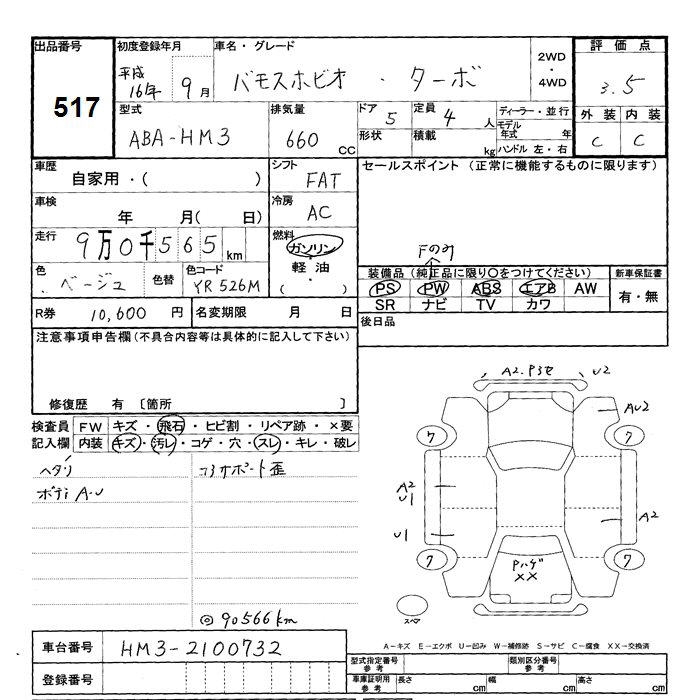 出品番号 初度登録年月 車名・グレード 評価点
517
平成 16年 9月 バモスホビオ ・ ターボ 2WD ・ 4WD 3.5
型式 排気量 ドア 定員 ディーラー・並行 外装 内装
ABA-HM3 660 CC 5 4人 モデル年式 年 C C
形状 積載 kg ハンドル 左・右
車歴 シフト セールスポイント (正常に機能するものに限ります)
自家用・( ) FAT
車検 冷房
年 月( 日) AC
走行 燃料 Fのみ
9万0千565km ガソリン
軽油
( )
色 色替 色コード 装備品 (純正品に限り○をつけてください) 新車保証書
ベージュ YR526M PS PW ABS エアB AW 有・無
SR ナビ TV カワ
R券 10,600 円 名変期限 月 日 後日品
注意事項申告欄(不具合内容等は具体的に記入して下さい)
修復歴 有 [箇所 ]
検査員 FW キズ・飛石・ヒビ割・リペア跡・×要
記入欄 内装 キズ・汚レ・コゲ・穴・スレ・キレ・破レ
ヘタリ コアサポート歪
ボディ A-U
◎90566km
A2.Pヨセ U2
AU2
7 7
A2
U1
A2
U1
Pハゲ
XX
7 7
スペア
車台番号 HM3-2100732
登録番号
A-キズ E-エクボ U-凹み W-補修跡 S-サビ C-腐食 XX-交換済
型式指定番号 参考 類別区分番号 参考
車庫証明用 参考 長さ cm 幅 cm 高さ cm